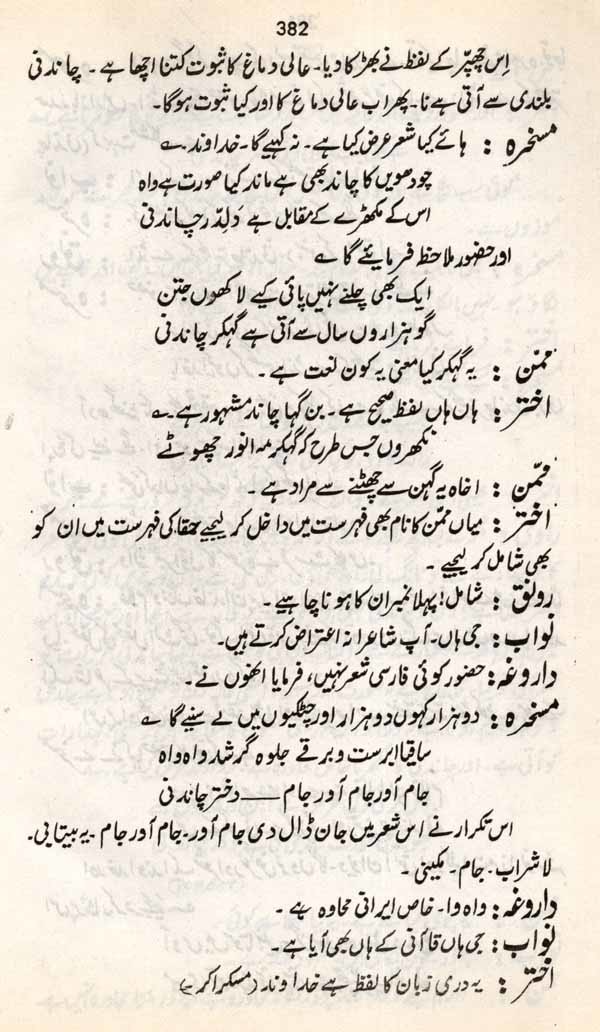 382
اِس چھپّر کے لفظ نے بھڑکا دیا۔ عالی دماغ کا ثبوت کتنا اچھا ہے۔ چاندنی
بلندی سے آتی ہے نا۔ پھر اب عالی دماغ کا اور کیا ثبوت ہوگا۔
مسخرہ : ہائے کیا شعر عرض کیا ہے۔ نہ کہیے گا۔ خداوند ؎
چودھویں کا چاند بھی ہے ماند کیا صورت ہے واہ
اس کے مکھڑے کے مقابل ہے دَلِدّر چاندنی
اور حضور ملاحظ فرمایئے گا ؎
ایک بھی چلنے نہیں پائی کیے لاکھوں جتن
گو ہزاروں سال سے آتی ہے گہکر چاندنی
ممّن : یہ گہکر کیا معنی یہ کون لغت ہے۔
اختر : ہاں ہاں لفظ صحیح ہے۔ بن گہا چاند مشہور ہے ؎
نکھروں جس طرح کہ گہکر مہ انور چھوٹے
ممّن : اخاہ یہ گہن سے چھٹنے سے مراد ہے۔
اختر : میاں ممّن کا نام بھی فہرست میں داخل کر لیجیے حمقا کی فہرست میں ان کو
بھی شامل کر لیجیے۔
رونق : شامل! پہلا نمبر ان کا ہونا چاہیے۔
نواب : جی ہاں۔ آپ شاعرانہ اعتراض کرتے ہیں۔
داروغہ : حضور کوئی فارسی شعر نہیں، فرمایا انھوں نے۔
مسخرہ : دو ہزار کہوں دو ہزار اور چٹکیوں میں لے سنیے گا ؎
ساقیا ابرست و برقے جلوہ گر شد واہ واہ
جام اَور جام اَور جام — دختر چاندنی
اس تکرار نے اس شعر میں جان ڈال دی جام اَور۔ جام اَور جام۔ یہ بیتابی۔
لا شراب۔ جام۔ مکینی۔
داروغہ : واہ وا۔ خاص ایرانی محاوہ ہے۔
نواب : جی ہاں قاآنی کے ہاں بھی آیا ہے۔
اختر : یہ دری زبان کا لفظ ہے خداوند (مسکرا کر)